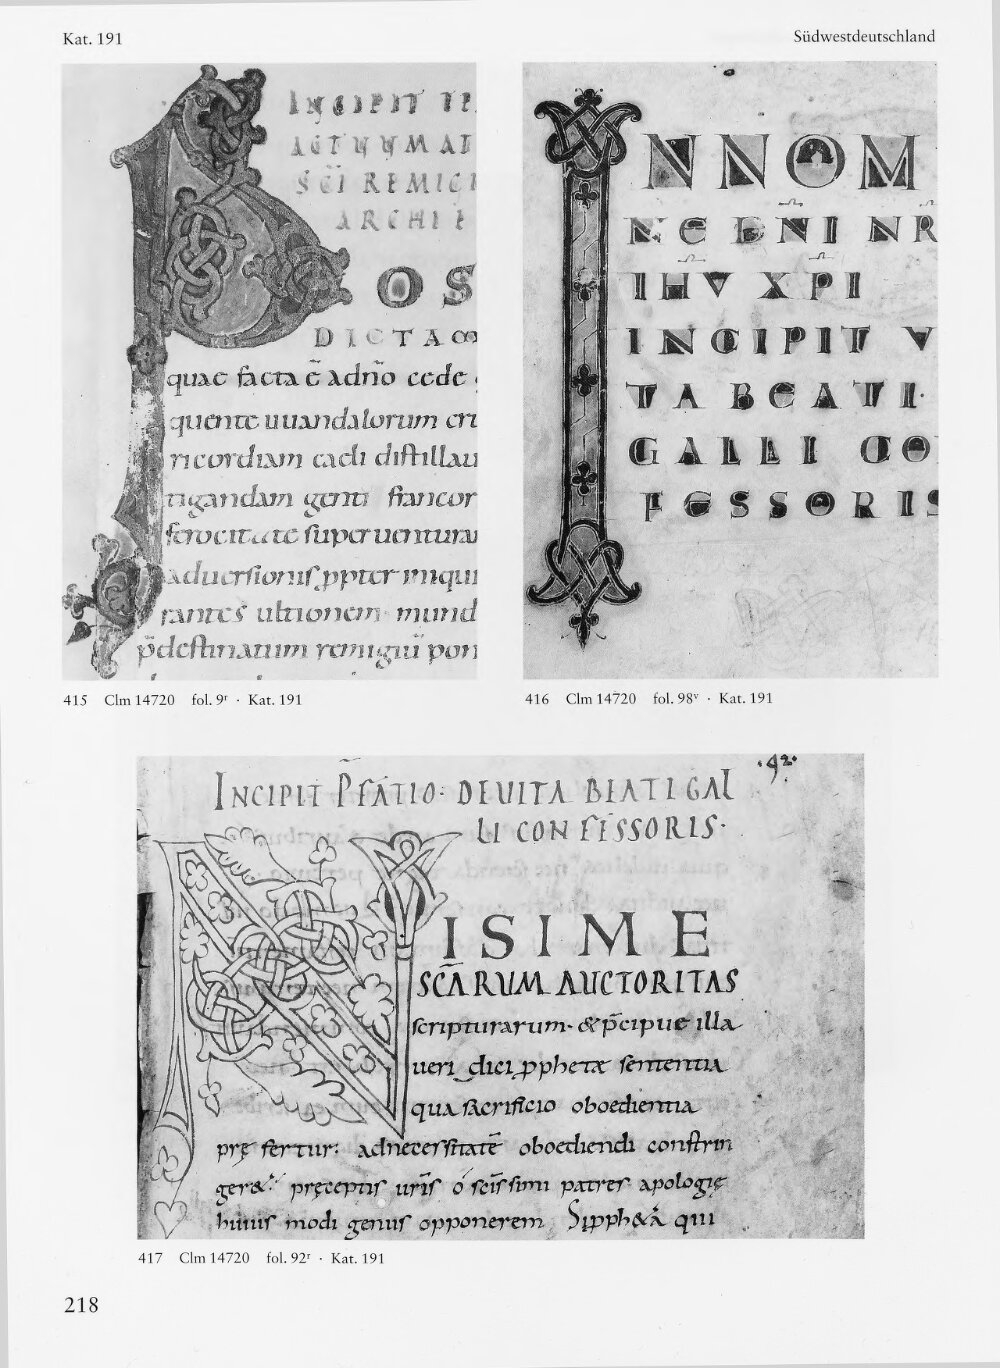 Kat. 191
Südwestdeutschland
INCIPIT TR
ACTUUM AT
SC̄I REMIGI
ARCHIE
POS
DICTA
quae facta ē adn̄o cede
quente uuandalorum cri
ricordiam caeli distillau
tigandam genti francor
ferocitate superuentura
aduersionis ꝓpter iniqui
rantes ultionem mund
p̄destinatum remigiū pon
415 Clm 14720 fol. 9ʳ · Kat. 191
INNOM
NE DN̄I NR
IHV XPI
INCIPIT V
TA BEATI
GALLI CO
FESSORIS
416 Clm 14720 fol. 98ᵛ · Kat. 191
·92·
INCIPIT P̄FATIO· DE UITA BEATI GAL
LI CONFESSORIS·
NISI ME
SC̄ARUM AUCTORITAS
scripturarum· & p̄cipue illa
ueri dici ꝓphetæ sententia
qua sacrificio oboedientia
prę fertur; ad necessitatē oboediendi constrin
ger&; pręceptis ur̄is o sc̄issimi patres apologię
huius modi genus opponerem, Si ꝓph&ā qui
417 Clm 14720 fol. 92ʳ · Kat. 191
218